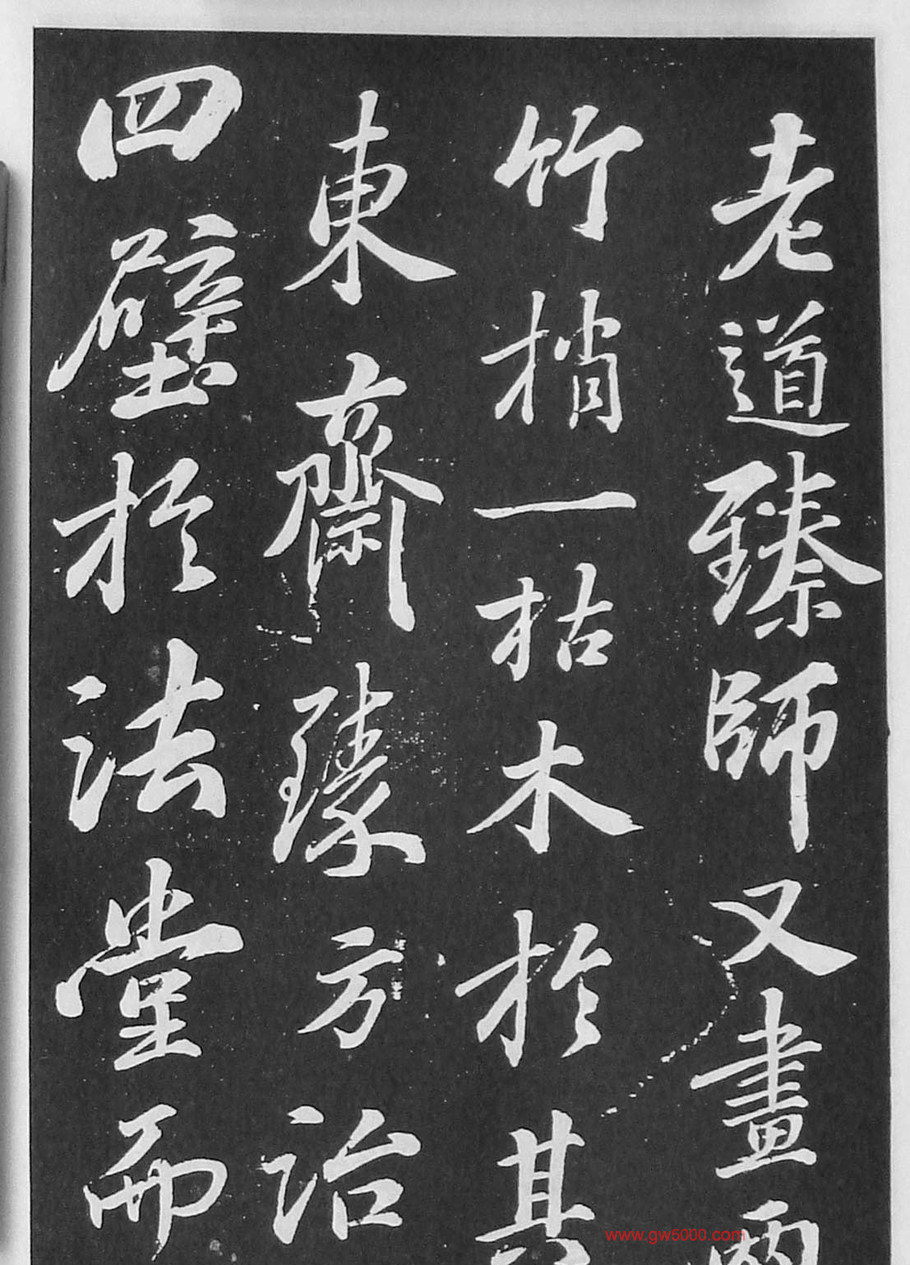 老道臻師又畫兩
竹梢一枯木於其
東齋臻方治
四壁於法堂而
www.gw5000.com